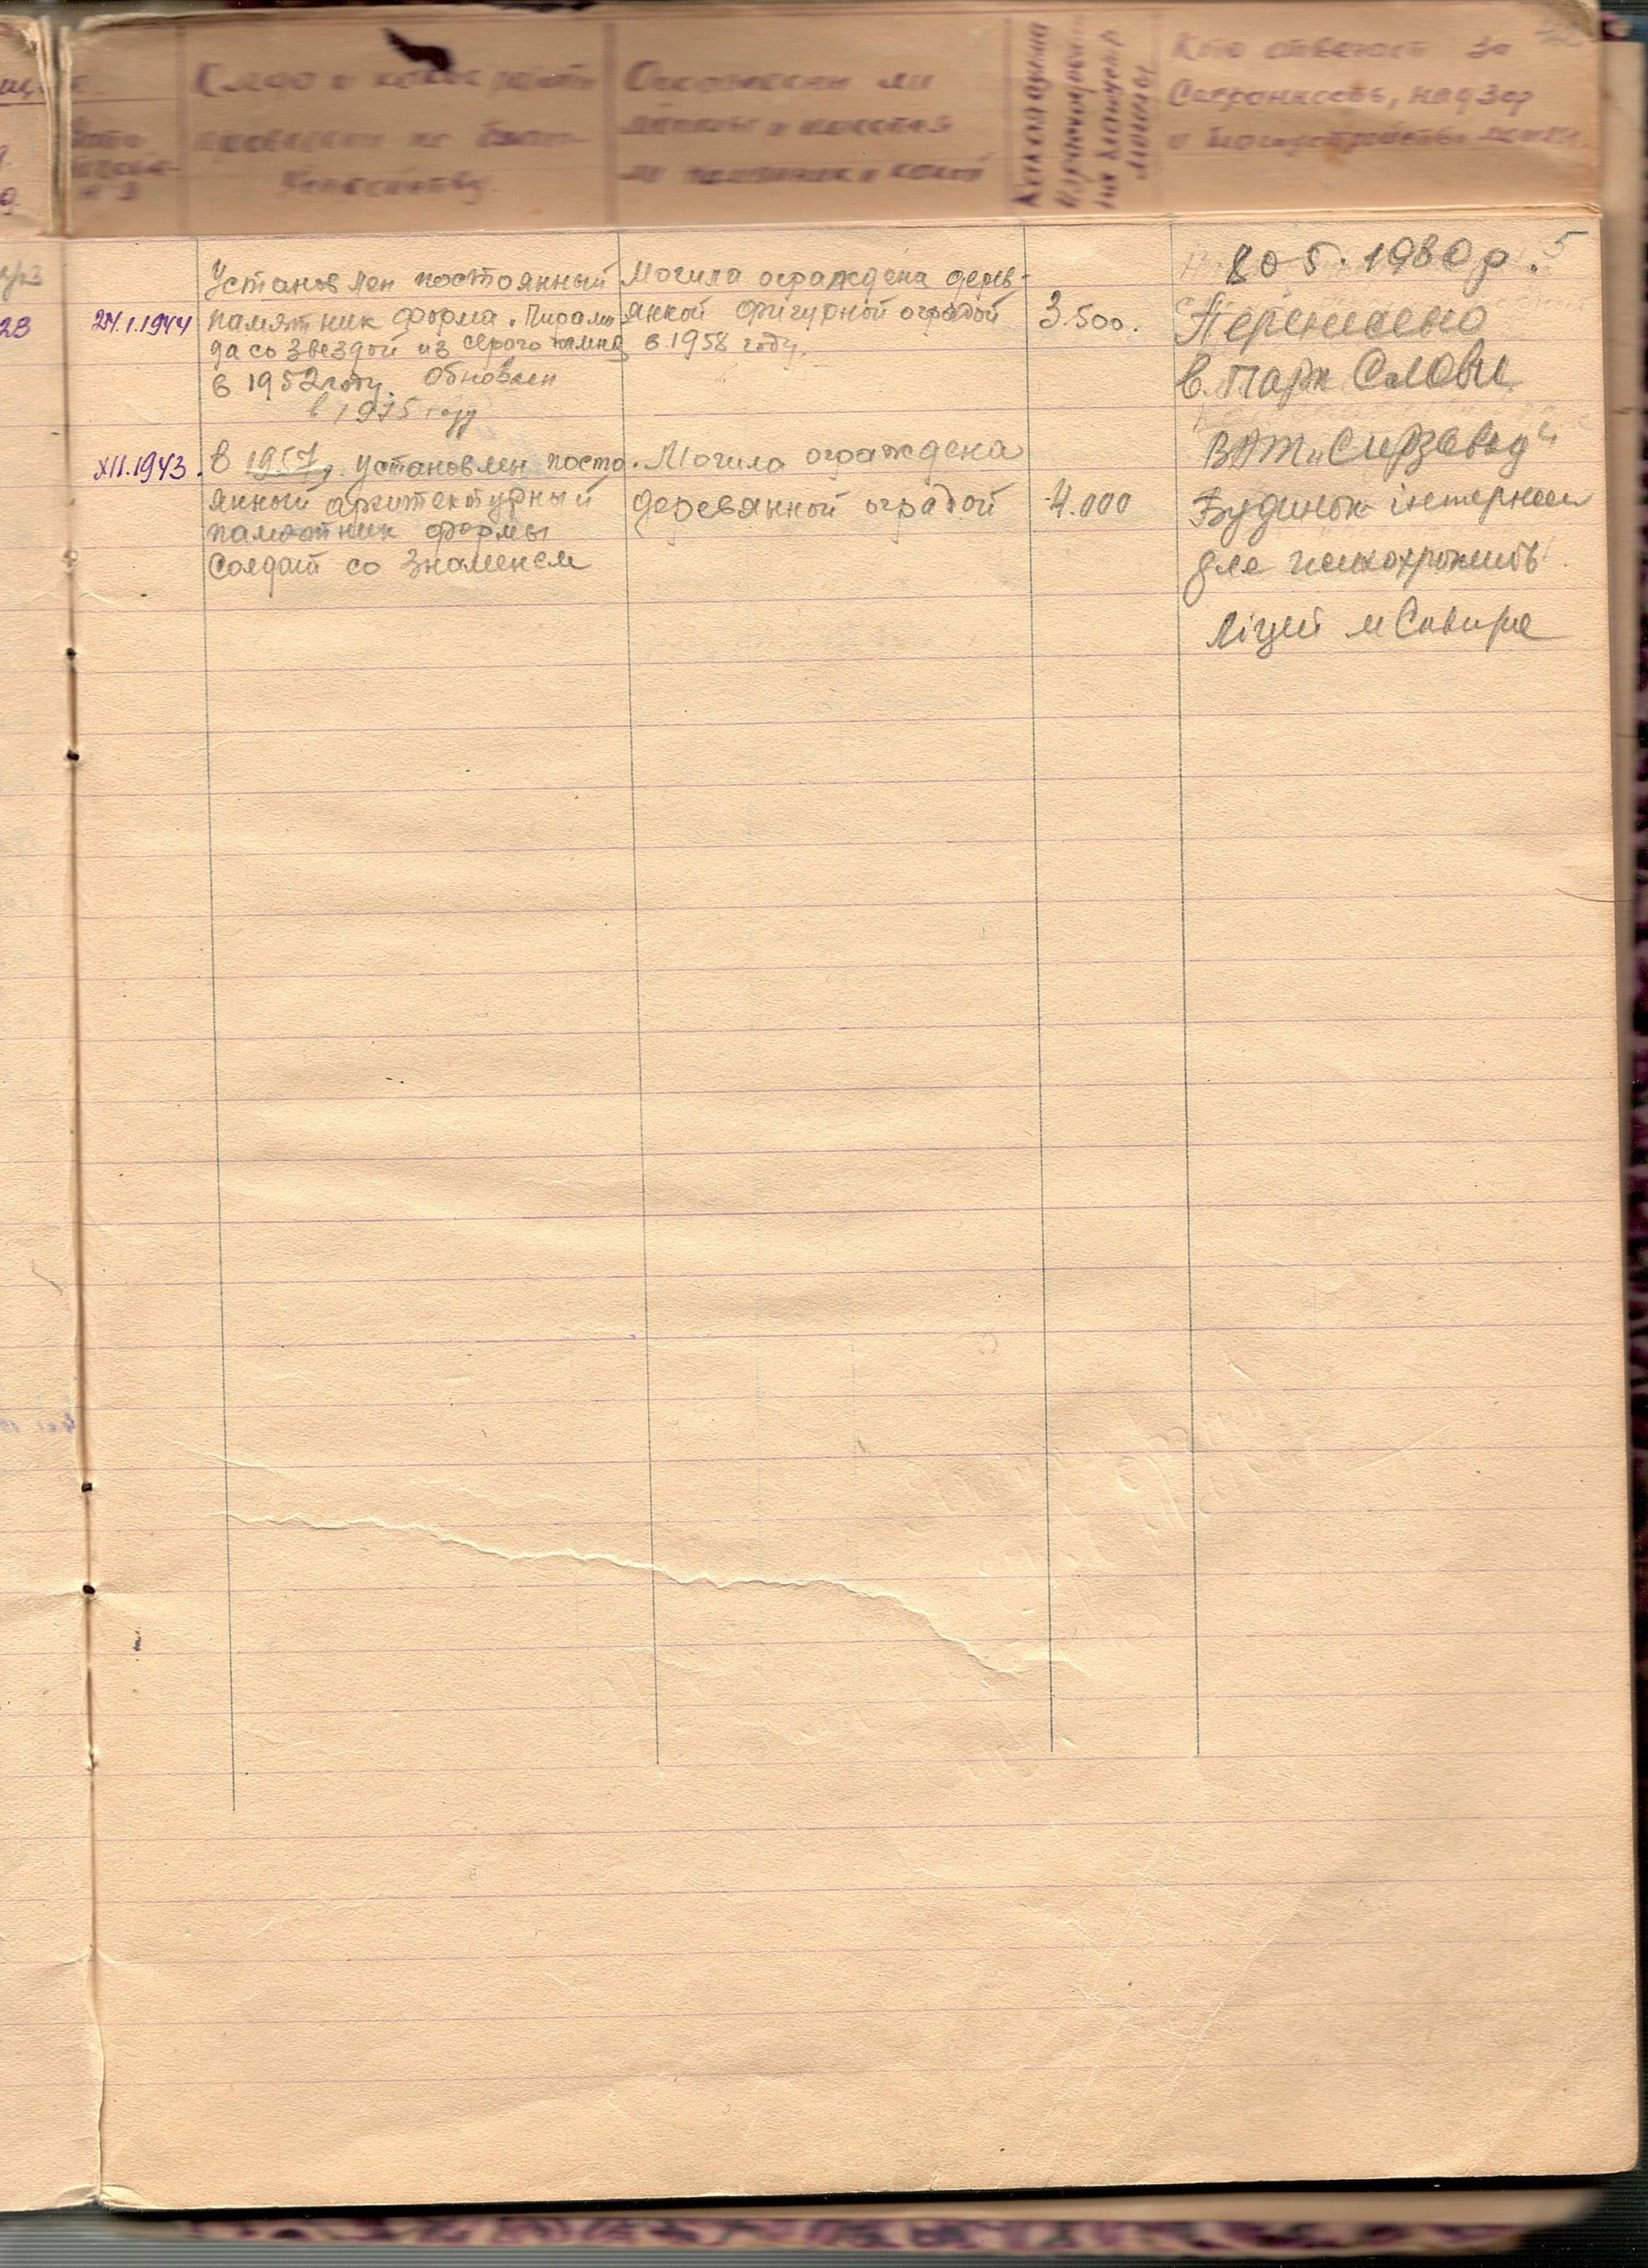 Когда и какие работы
проведены по благо-
устройству.
Ограждены ли
могилы и имеется
ли памятник и какой
Кто отвечает за
Сохранность, надзор
и благоустройство могил.
24.1.1944
Установлен постоянный
памятник форма. Пирами
да со звездой из серого камня
в 1952 году. Обновлен
в 1975 году
Могила ограждена дерев-
янкой фигурной оградой
в. 1958 году.
3.500.
5
1980 р.
Перенесено
в. Парк Слави
XII.1943.
В 1957 г. установлен посто
янный архитектурный
памятник формы
Солдат со знаменем
Могила ограждена
деревянной оградой
4.000
ВАТ „Сирзавод"
Будинок інтернат
для психохроників
Ліцей м Сквира